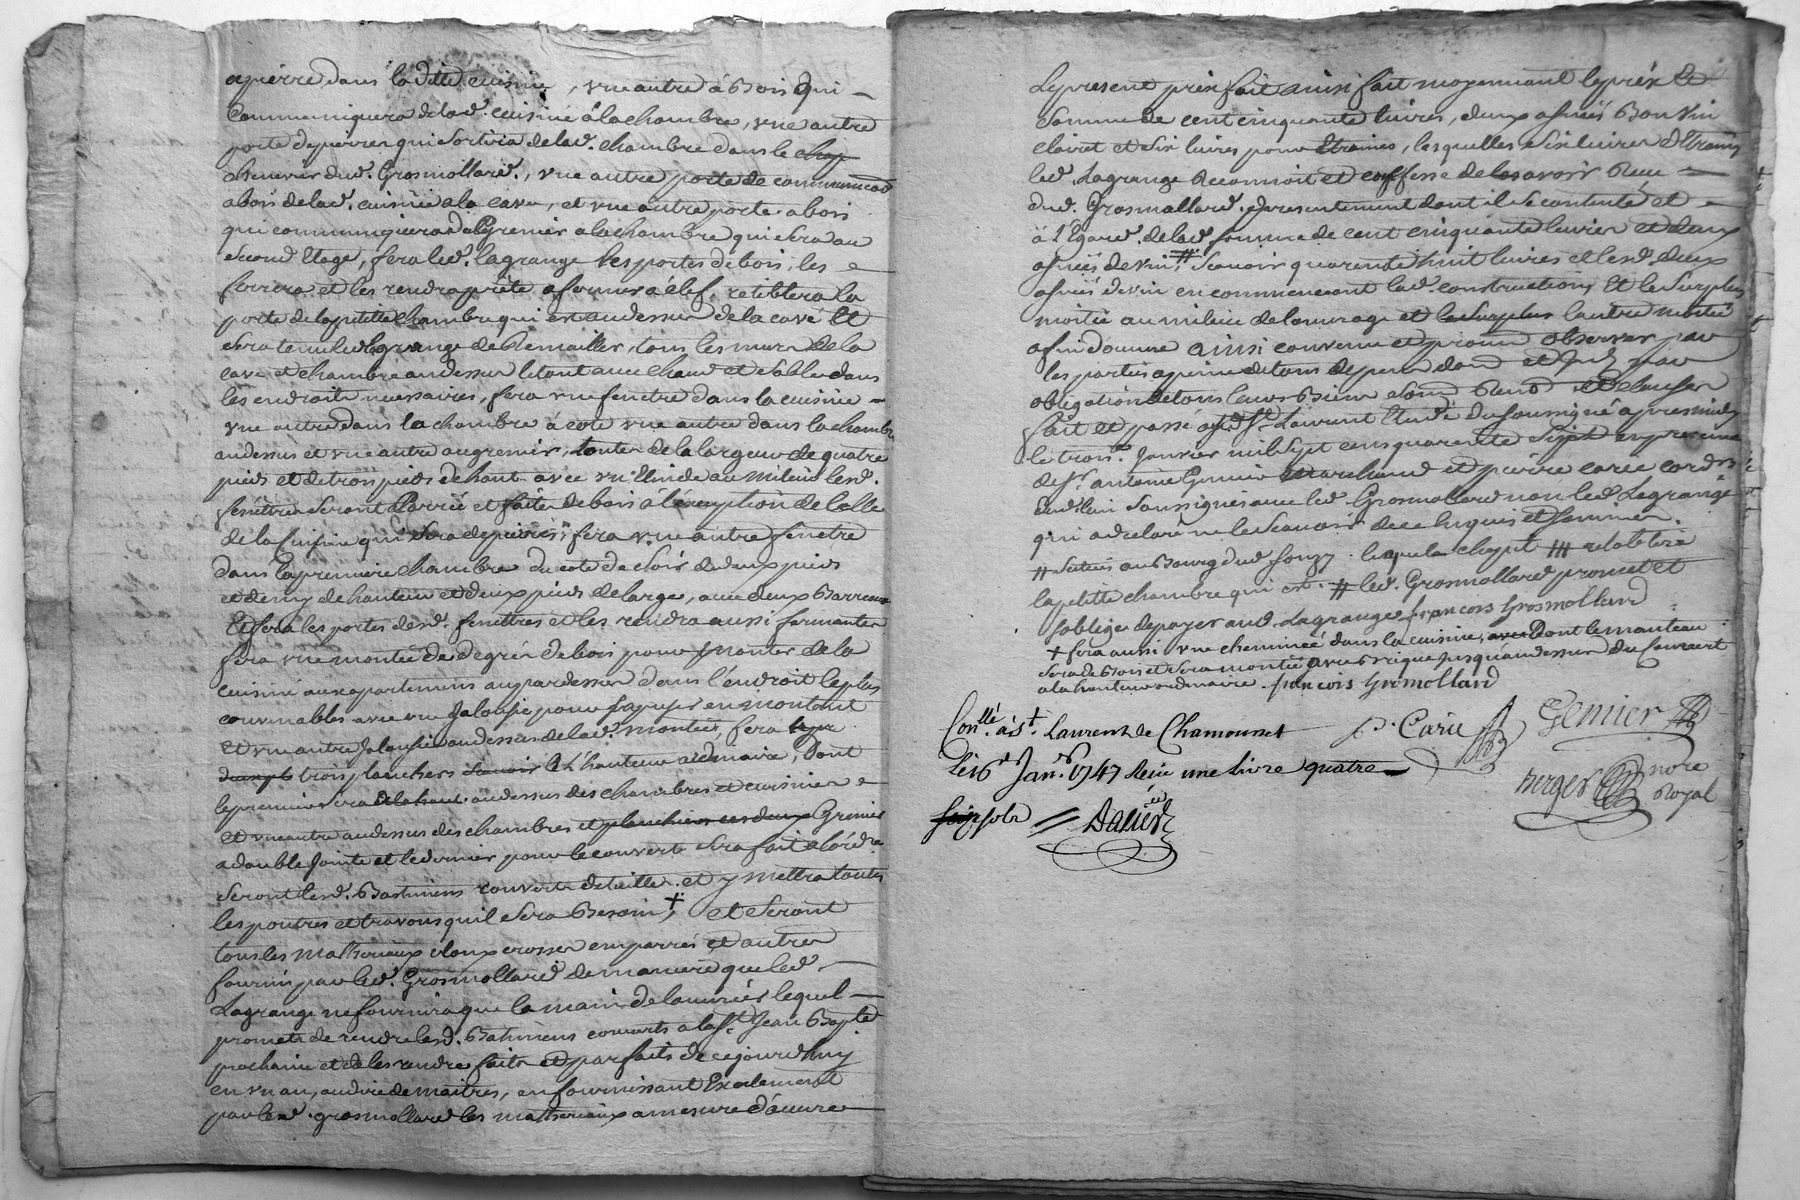 apierre dans la ditte cuisine, vne autre à Bois Qui
Communiquera de lad. cuisine à la chambre, vne autre
porte de pierre qui Sortira de lad. chambre dans le chep
chenevier dud. Grosmollard, vne autre porte de communicaon
abois delad. cuisine a la cave, et vne autre porte abois
qui communiquera du Grenier a la chambre qui Sera au
Second Etage, fera led. lagrange les portes de bois, les
ferrera et les rendra prête a fermer a clef, retablera la
porte de la petitte chambre qui est au dessus de la cave Et
Sera tenu led. lagrange de Remailler, tous les murs de la
cave et chambre au dessus letout avec chaud et Sable dans
les endroits necessaires, fera vne fenetre dans la cuisine
vne autre dans la chambre à coté vne autre dans la chambre
au dessus et vne autre au grenier, toutes de la largeur de quatre
pieds et de trois pieds de haut avec vn au milieu lesd.
fenêtres Seront et faites de bois à l'exeption de celle
de la Cuisine qui Sera de pierre, fera vne autre fenetre
dans la premiere chambre du coté de Soir de deux pieds
et demy de hauteur et deux pieds de large, avec deux Barreaux
Et fera les portes desd. fenêttres et les rendra aussi fermantes
fera vne montée de degrés de bois pour monter de la
cuisine aux apartements au pardessus dans l'endroit le plus
convenables avec vne Jalousie pour en montant
Et vne autre Jalousie au dessus de lad. montée, fera
trois planchers à L'hauteur ordinaire, Dont
le premier Sera au dessus des chambres et cuisine
et vn autre au dessus des chambres et planchiers ces deux Grenier
a double Jointe et le dernier pour le couvert Sera fait
Seront lesd. Bastimens couverts de tuilles et y mettra toutes
les poutres et travons quil Sera Besoin +, et Seront
tous les matheriaux et autres
fournis par led. Grosmollard de maniere que led.
Lagrange ne fournira que la main de l'ouvrier lequel
promet de rendre lesd. Batimens couverts a la St. Jean Bapte
prochaine et de les rendre faits et parfaits de cejourdhuy
en vn an, au dire de maitres, en fournissant Exactement
par led. grosmollard les matheriaux a mesure d'œuvre
Le present prix fait ainsi fait moyennant le prix Et
Somme de cent cinquante livres, deux asnées Bon Vin
clairet et Six livres pour Etraines, lesquelles Six livres d'Etraines
led. Lagrange Reconnoit et confesse de les avoir Reçu
dud. Grosmollard presentement dont il Se contente et
à l'Egard de lad. Somme de cent cinquante livres et deux
asnées de vin, # Scavoir quarente huit livres et lesd. deux
asnées de vin en commencant lad. construction Et le Surplus
moitié au milieu de l'ouvrage et le Surplus l'autre moitié
a fin d'œuvre ainsi convenu et promis observer par
les parties a peine de tous depens dom et Int par
obligation de tous leurs Biens Soum Renon et clauses
fait et passé aud. St. Laurent Etude du soussigné apres midy
le trois. Janvier mil Sept cens quarente Sept en presence
de Sr. antoine Gemier Marchand et pierre carie cordr
dud. lieu Soussignés avec led. Grosmollard non led. Lagrange
qui a declaré ne le Scavoir de ce Enquis et Sommés.
# Scitués au Bourg dud. Souzy. # retablira
la petitte chambre qui est. # led. Grosmollard promet et
s'oblige de payer aud. Lagrange françois Grosmollard
+ fera aussi vne cheminée dans la cuisine, avec Dont le manteau
Sera de Bois et Sera montée avec Brique Jusqu'au dessus du Couvert
a la hauteur ordinaire. françois Grosmollard
Conllé. à St. Laurent de Chamousset
p. Carie
Gemier
Le 16e. Janr. 1747 Reçu une livre quatre
Berger nore
Royal
sols
Dalier